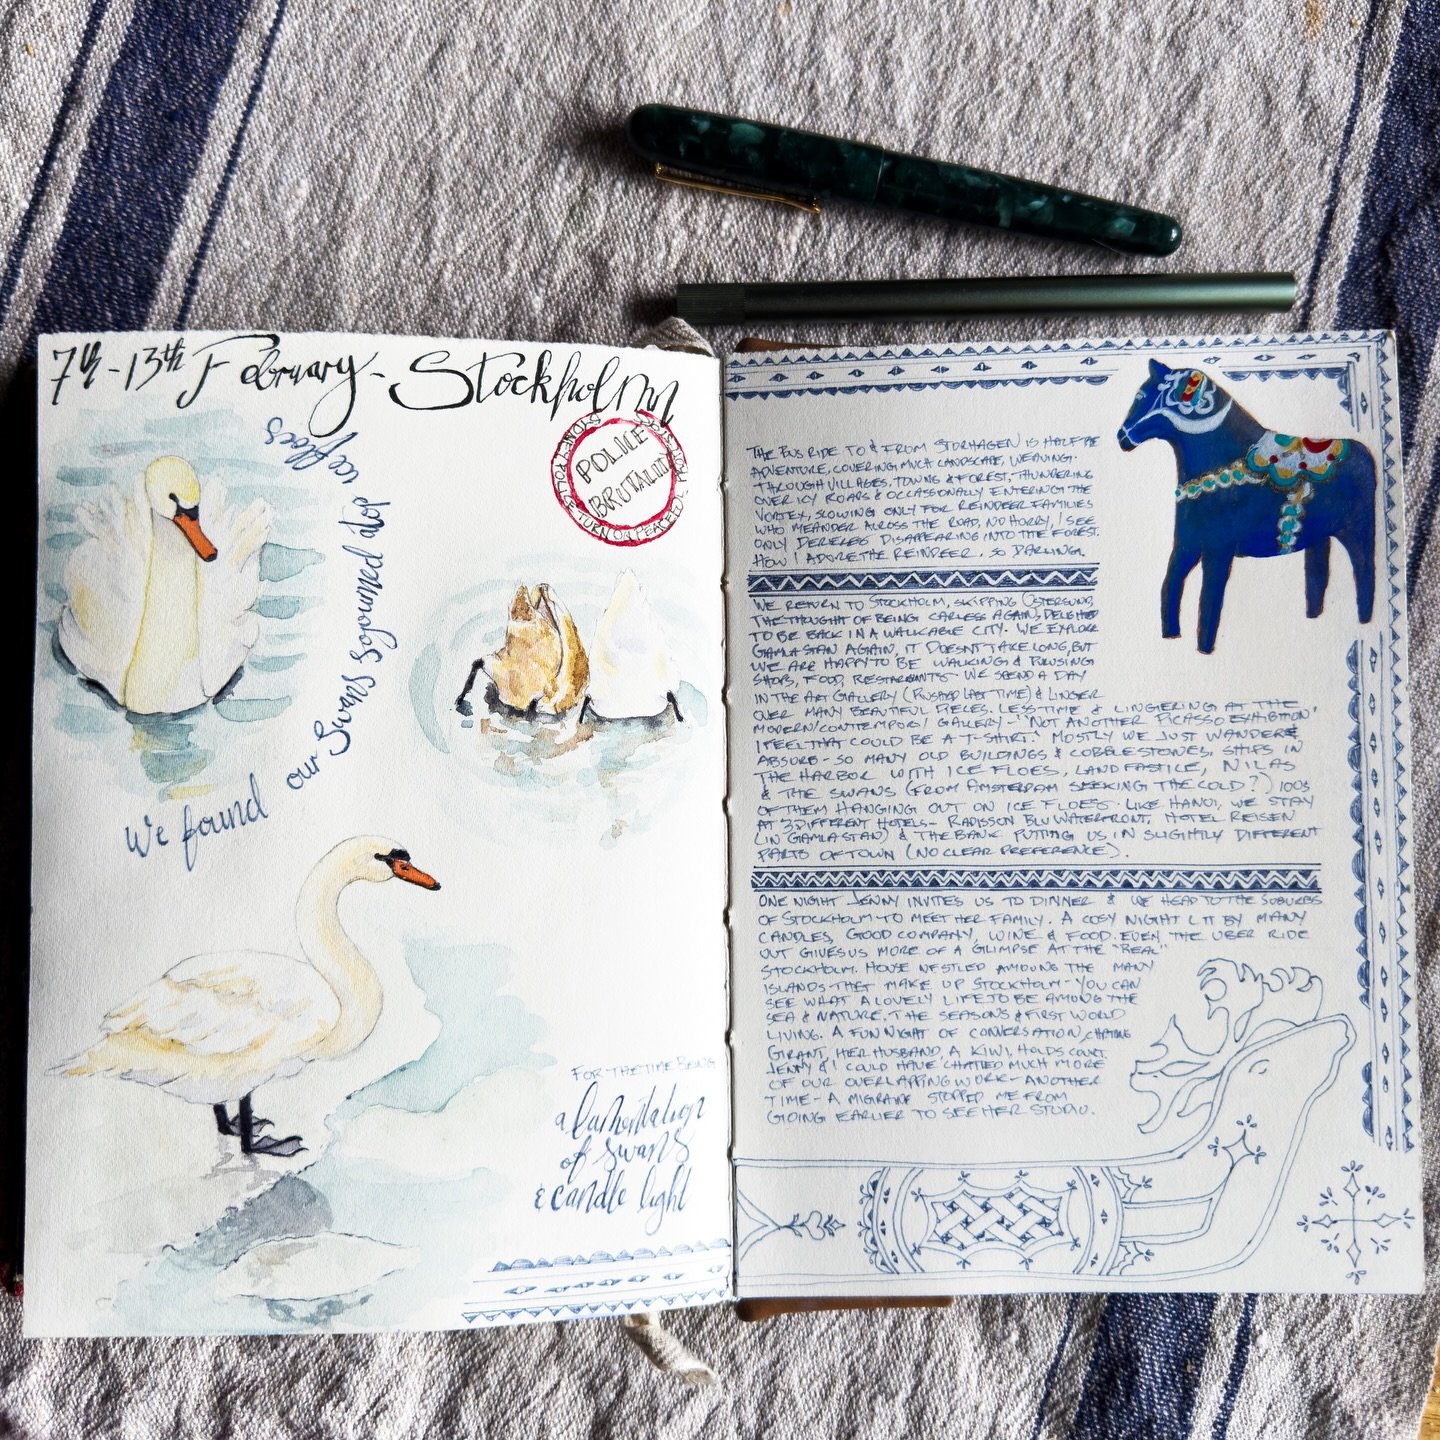 7th - 13th February - Stockholm
We found our Swans Sojourned atop ice floes
POLICE
BRUTALITY
SYDNEY POLICE TURN ON PEACEFUL
FOR THE TIME BEING
a lamentation
of swans
& candle light
THE BUS RIDE TO & FROM STORHAGEN IS HALF THE
ADVENTURE, COVERING MUCH LANDSCAPE, WEAVING
THROUGH VILLAGES, TOWNS & FOREST, THUNDERING
OVER ICY ROADS & OCCASSIONALLY ENTERING THE
VORTEX, SLOWING ONLY FOR REINDEER FAMILIES
WHO MEANDER ACROSS THE ROAD, NO HORRY, I SEE
ONLY DERRIERES DISAPPEARING INTO THE FOREST.
HOW I ADORE THE REINDEER, SO DARLING.
WE RETURN TO STOCKHOLM, SKIPPING OSTERSUND,
THE THOUGHT OF BEING CARLESS AGAIN, DELIGHTED
TO BE BACK IN A WALKABLE CITY. WE EXPLORE
GAMLA STAN AGAIN, IT DOESN'T TAKE LONG, BUT
WE ARE HAPPY TO BE WALKING & PURUSING
SHOPS, FOOD, RESTAURANTS. WE SPEND A DAY
IN THE ART GALLERY (RUSHED LAST TIME) & LINGER
OVER MANY BEAUTIFUL PIECES. LESS TIME & LINGERING AT THE
MODERN/CONTEMPORY GALLERY - 'NOT ANOTHER PICASSO EXHIBITION'
I FEEL THAT COULD BE A T-SHIRT. MOSTLY WE JUST WANDER &
ABSORB - SO MANY OLD BUILDINGS & COBBLESTONES. SHIPS IN
THE HARBOR WITH ICE FLOES, LANDFAST ICE, NILAS
& THE SWANS (FROM AMSTERDAM SEEKING THE COLD?) 100S
OF THEM HANGING OUT ON ICE FLOES. LIKE HANOI, WE STAY
AT 3 DIFFERENT HOTELS - RADISSON BLU WATERFRONT, HOTEL REISEN
(IN GAMLA STAN) & THE BANK PUTTING US IN SLIGHTLY DIFFERENT
PARTS OF TOWN (NO CLEAR PREFERENCE).
ONE NIGHT JENNY INVITES US TO DINNER & WE HEAD TO THE SUBURBS
OF STOCKHOLM TO MEET HER FAMILY. A COSY NIGHT LIT BY MANY
CANDLES, GOOD COMPANY, WINE & FOOD. EVEN THE UBER RIDE
OUT GIVES US MORE OF A GLIMPSE AT THE "REAL"
STOCKHOLM. HOUSE NESTLED AMOUNG THE MANY
ISLANDS THAT MAKE UP STOCKHOLM - YOU CAN
SEE WHAT A LOVELY LIFE TO BE AMONG THE
SEA & NATURE. THE SEASONS & FIRST WORLD
LIVING. A FUN NIGHT OF CONVERSATION, CHATTING
GRANT, HER HUSBAND, A KIWI, HOLDS COURT.
JENNY & I COULD HAVE CHATTED MUCH MORE
OF OUR OVERLAPPING WORK - ANOTHER
TIME - A MIGRAINE STOPPED ME FROM
GOING EARLIER TO SEE HER STUDIO.